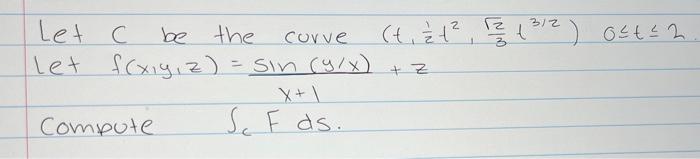 Let C be the curve (t, ½t², √2/3 t^3/2) 0≤t≤2.
Let f(x,y,z) = sin(y/x)/x+1 + z
Compute ∫c F ds.